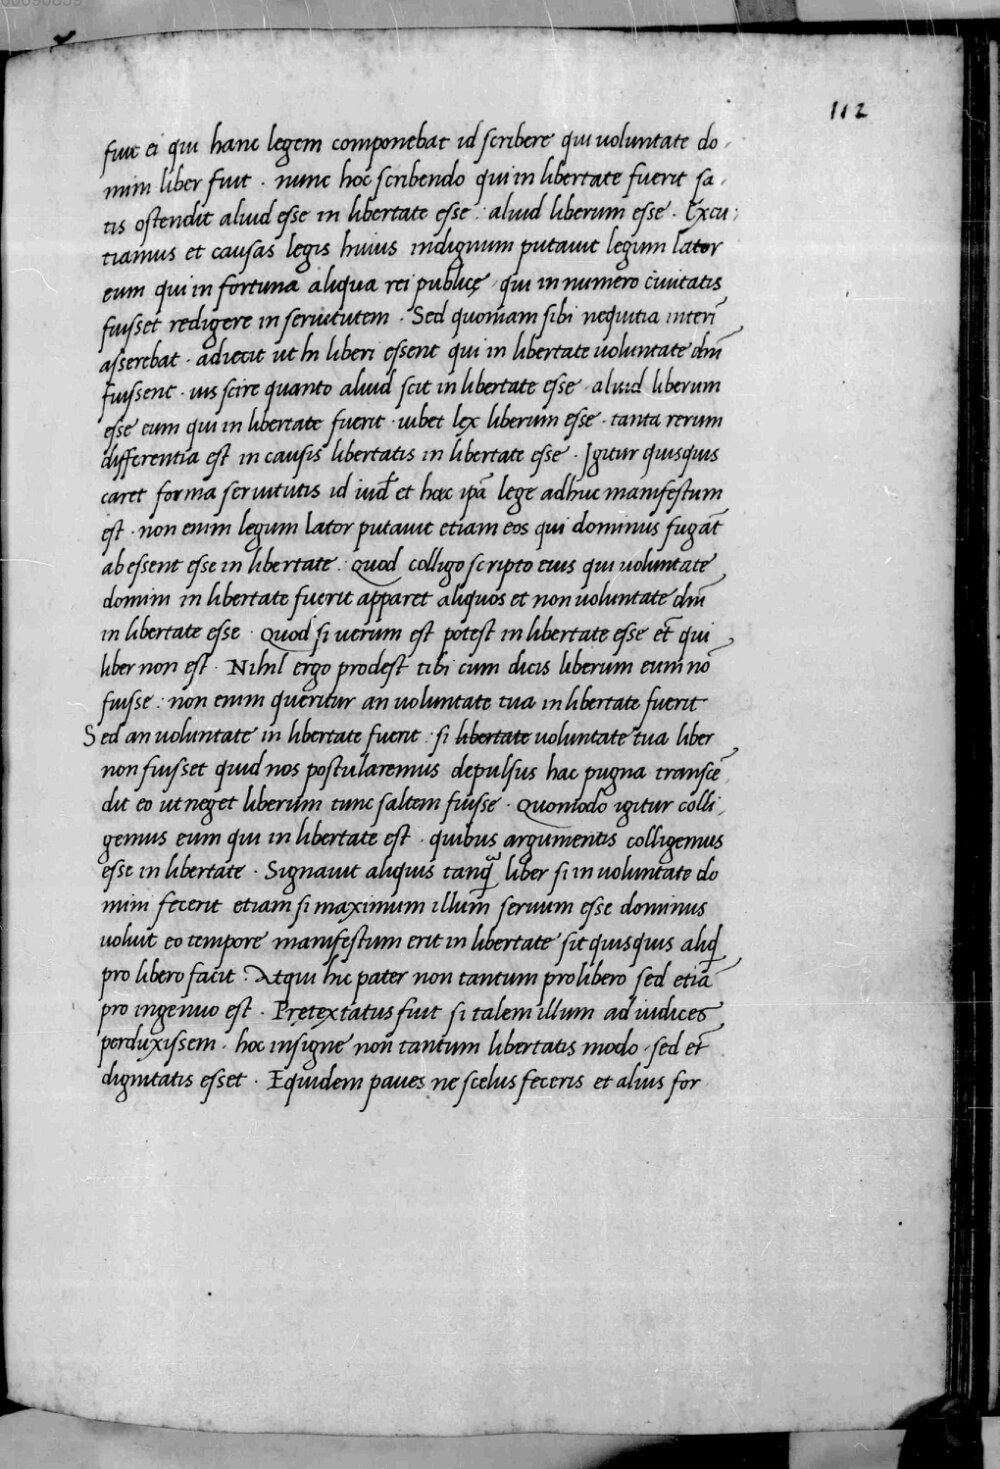 112
fuit ei qui hanc legem componebat id scribere qui voluntate do,
mini liber fuit · nunc hoc scribendo qui in libertate fuerit sa,
tis ostendit aliud esse in libertate esse · aliud liberum esse · Excu,
tiamus et causas legis huius indignum putauit legum lator
eum qui in fortuna aliqua rei publicę · qui in numero ciuitatis
fuisset redigere in seruitutem · Sed quoniam sibi nequitia interī
asserebat · adiecit ut hi liberi essent qui in libertate uoluntate dn̄i
fuissent · uis scire quanto aliud sit in libertate esse · aliud liberum
esse eum qui in libertate fuerit · iubet lex liberum esse · tanta rerum
differentia est in causis libertatis in libertate esse · Igitur quisquis
caret forma seruitutis id iud̄ et hac ipā lege adhuc manifestum
est · non enim legum lator putauit etiam eos qui dominus fugāt
ab essent esse in libertate · Quod colligo scripto eius qui uoluntate
domini in libertate fuerit apparet aliquos et non uoluntate dn̄i
in libertate esse · Quod si uerum est potest in libertate esse et̄ qui
liber non est · Nihil ergo prodest tibi cum dicis liberum eum nō
fuisse · non enim queritur an uoluntate tua in libertate fuerit
Sed an uoluntate in libertate fuerit · si libertate uoluntate tua liber
non fuisset quid nos postularemus depulsus hac pugna transcē,
dit eo ut neget liberum tunc saltem fuisse · Quomodo igitur colli,
gemus eum qui in libertate est · quibus argumentis colligemus
esse in libertate · Signauit aliquis tanq̄ liber si in uoluntate do
mini fecerit etiam si maximum illum seruum esse dominus
uoluit eo tempore manifestum erit in libertate sit quisquis aliq̄
pro libero facit · Atqui hic pater non tantum pro libero sed etiā
pro ingenuo est · Pretextatus fuit si talem illum ad iudices
perduxissem · hoc insigne non tantum libertatis modo · sed et̄
dignitatis esset · Equidem paues ne scelus feceris et alius for